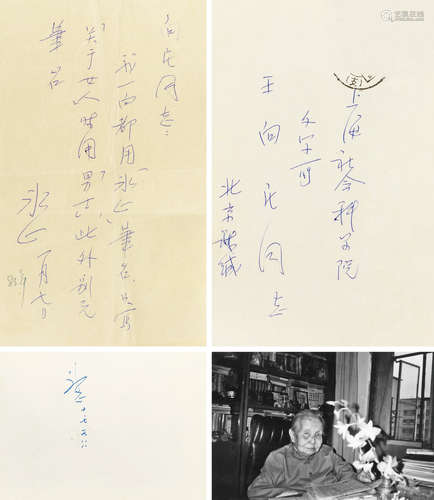 向民同志：
我一向都用“冰心”筆名只写
“关于女人”时用“男士”，此外别无
筆名
冰心
一月七日
上海社会科学院
文学所
王向民同志
北京谢缄
冰心
艺狐在线